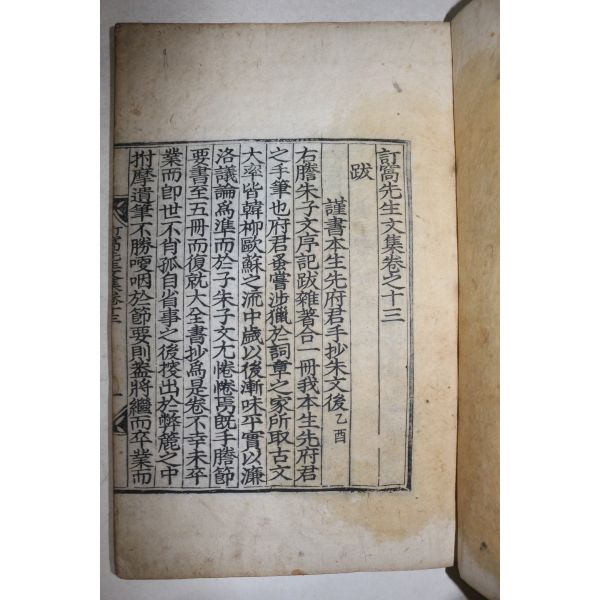 訂窩先生文集卷之十三
跋
謹書本生先府君手抄朱文後乙酉
右謄朱子文序記跋雜著合一冊我本生先府君
之手筆也府君蚤嘗涉獵於詞章之家所取古文
大率皆韓柳歐蘇之流中歲以後漸味平實以濂
洛議論爲準而於子朱子文尤惓惓焉旣手謄節
要書至五冊而復就大全書抄爲是卷不幸未卒
業而卽世不肖孤自省事之後搜出於弊簏之中
拊摩遺筆不勝哽咽於節要則蓋將繼而卒業而
訂窩先生文集卷十三
一